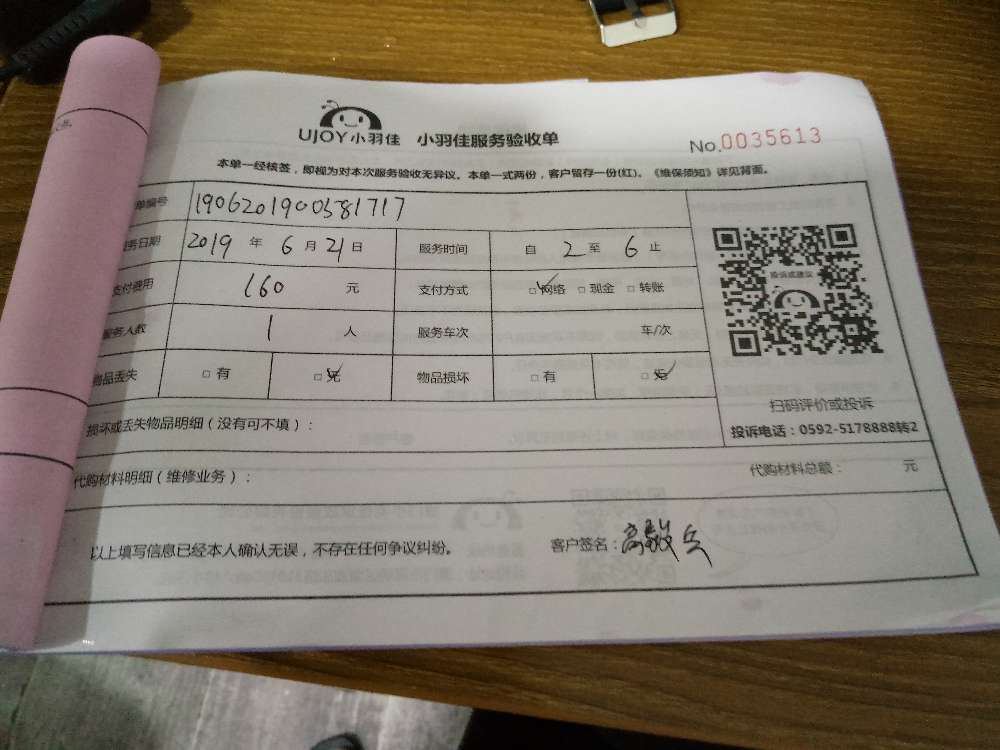 UJOY小羽佳 小羽佳服务验收单 No.0035613
本单一经核签，即视为对本次服务验收无异议。本单一式两份，客户留存一份(红)。《维保须知》详见背面。
单编号 1906201900381717
务日期 2019 年 6 月 21 日 服务时间 自 2 至 6 止
支付费用 160 元 支付方式 □网络 □现金 □转账
服务人数 1 人 服务车次 车/次
物品丢失 □有 □无 物品损坏 □有 □无
投诉或建议
扫码评价或投诉
投诉电话：0592-5178888转2
损坏或丢失物品明细（没有可不填）：
代购材料明细（维修业务）： 代购材料总额： 元
以上填写信息已经本人确认无误，不存在任何争议纠纷。 客户签名：高毅兵